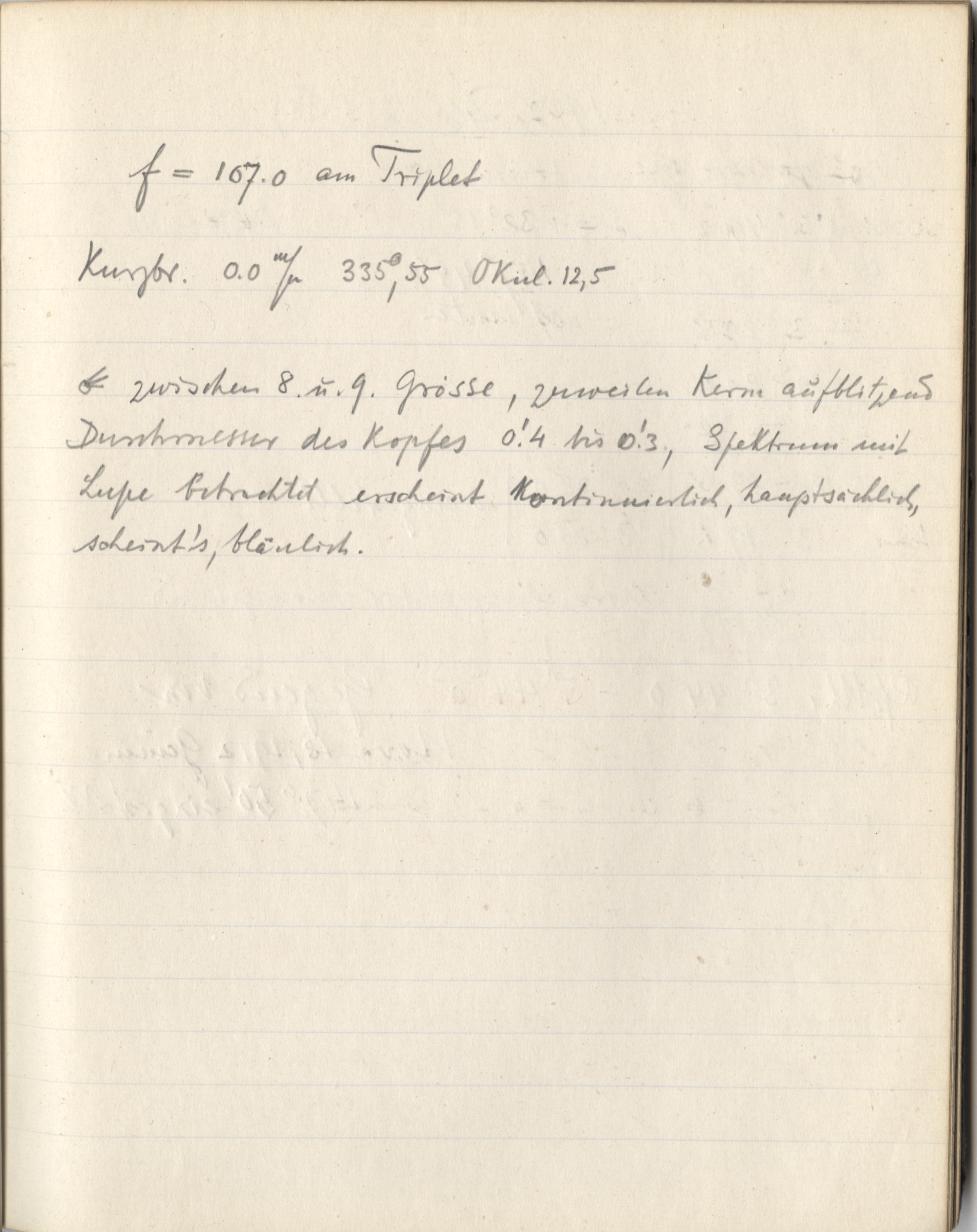 f = 107.0 am Triplet
Kurzbr. 0.0 m/m 335°,55 Okul. 12,5
☄ zwischen 8. u. 9. Grösse, zuweilen Kern aufblitzend
Durchmesser des Kopfes 0!4 bis 0!3, Spektrum mit
Lupe betrachtet erscheint kontinuierlich, hauptsächlich,
scheint's, bläulich.